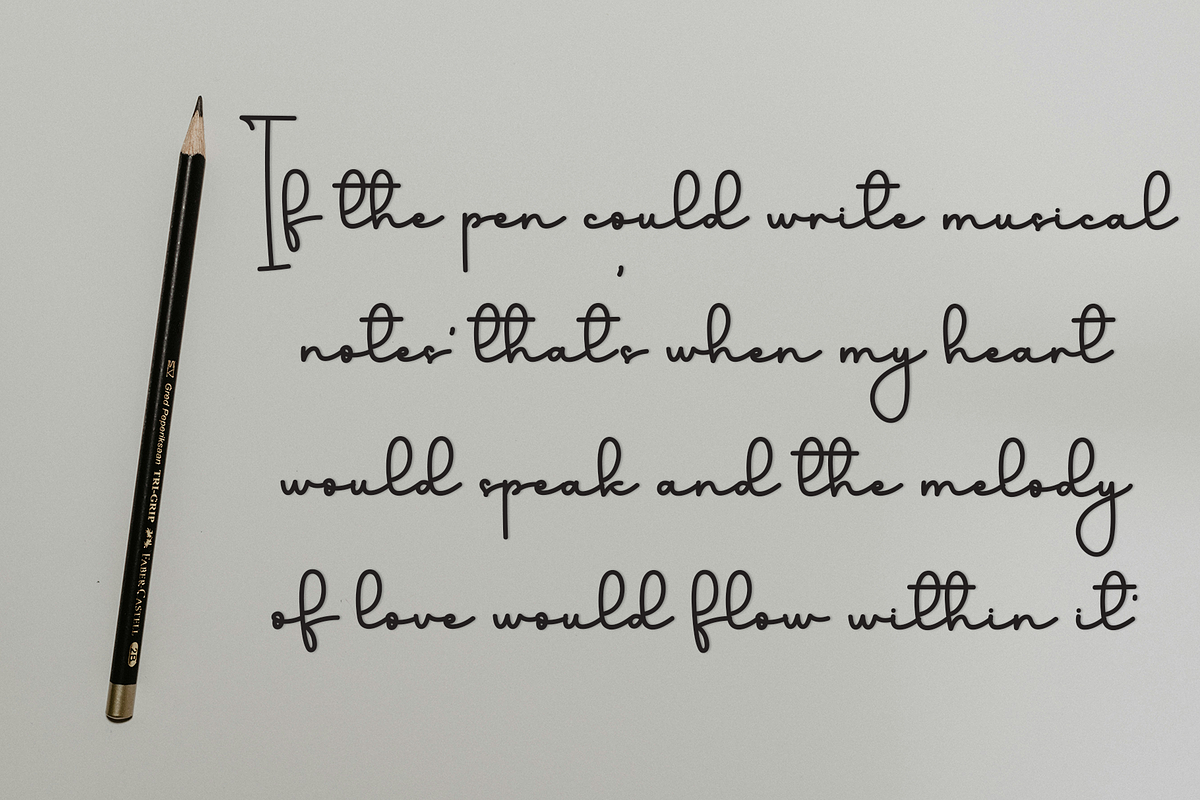 If the pen could write musical
notes, that's when my heart
would speak and the melody
of love would flow within it.
TRI-GRIP FABER-CASTELL 2B